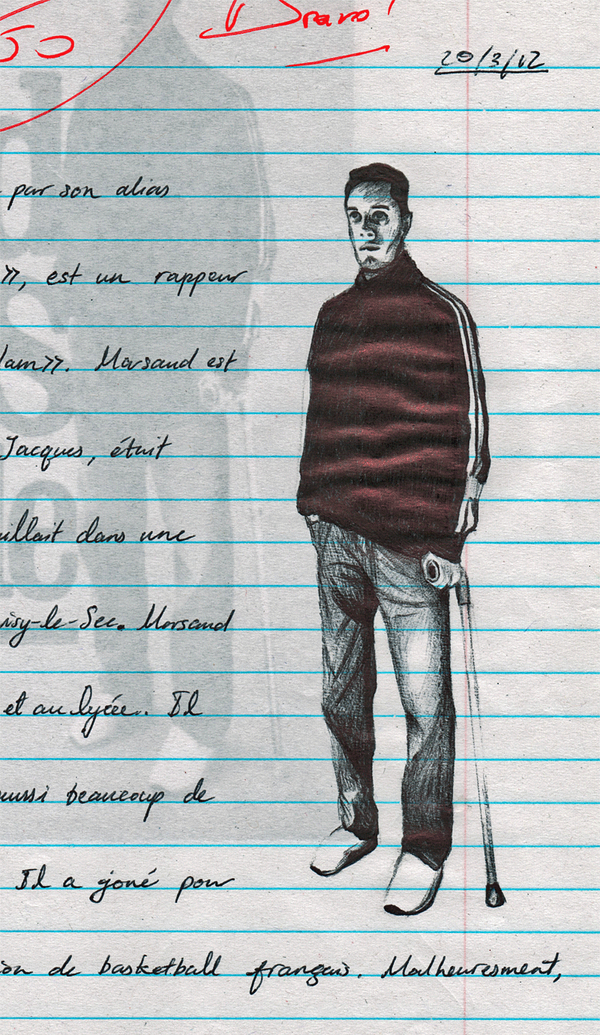 50 Bravo!
20/3/12
par son alias
», est un rappeur
lam». Marsand est
Jacques, était
aillait dans une
isy-le-Sec. Marsand
et au lycée. Il
aussi beaucoup de
Il a joué pour
ion de basketball français. Malheuresment,